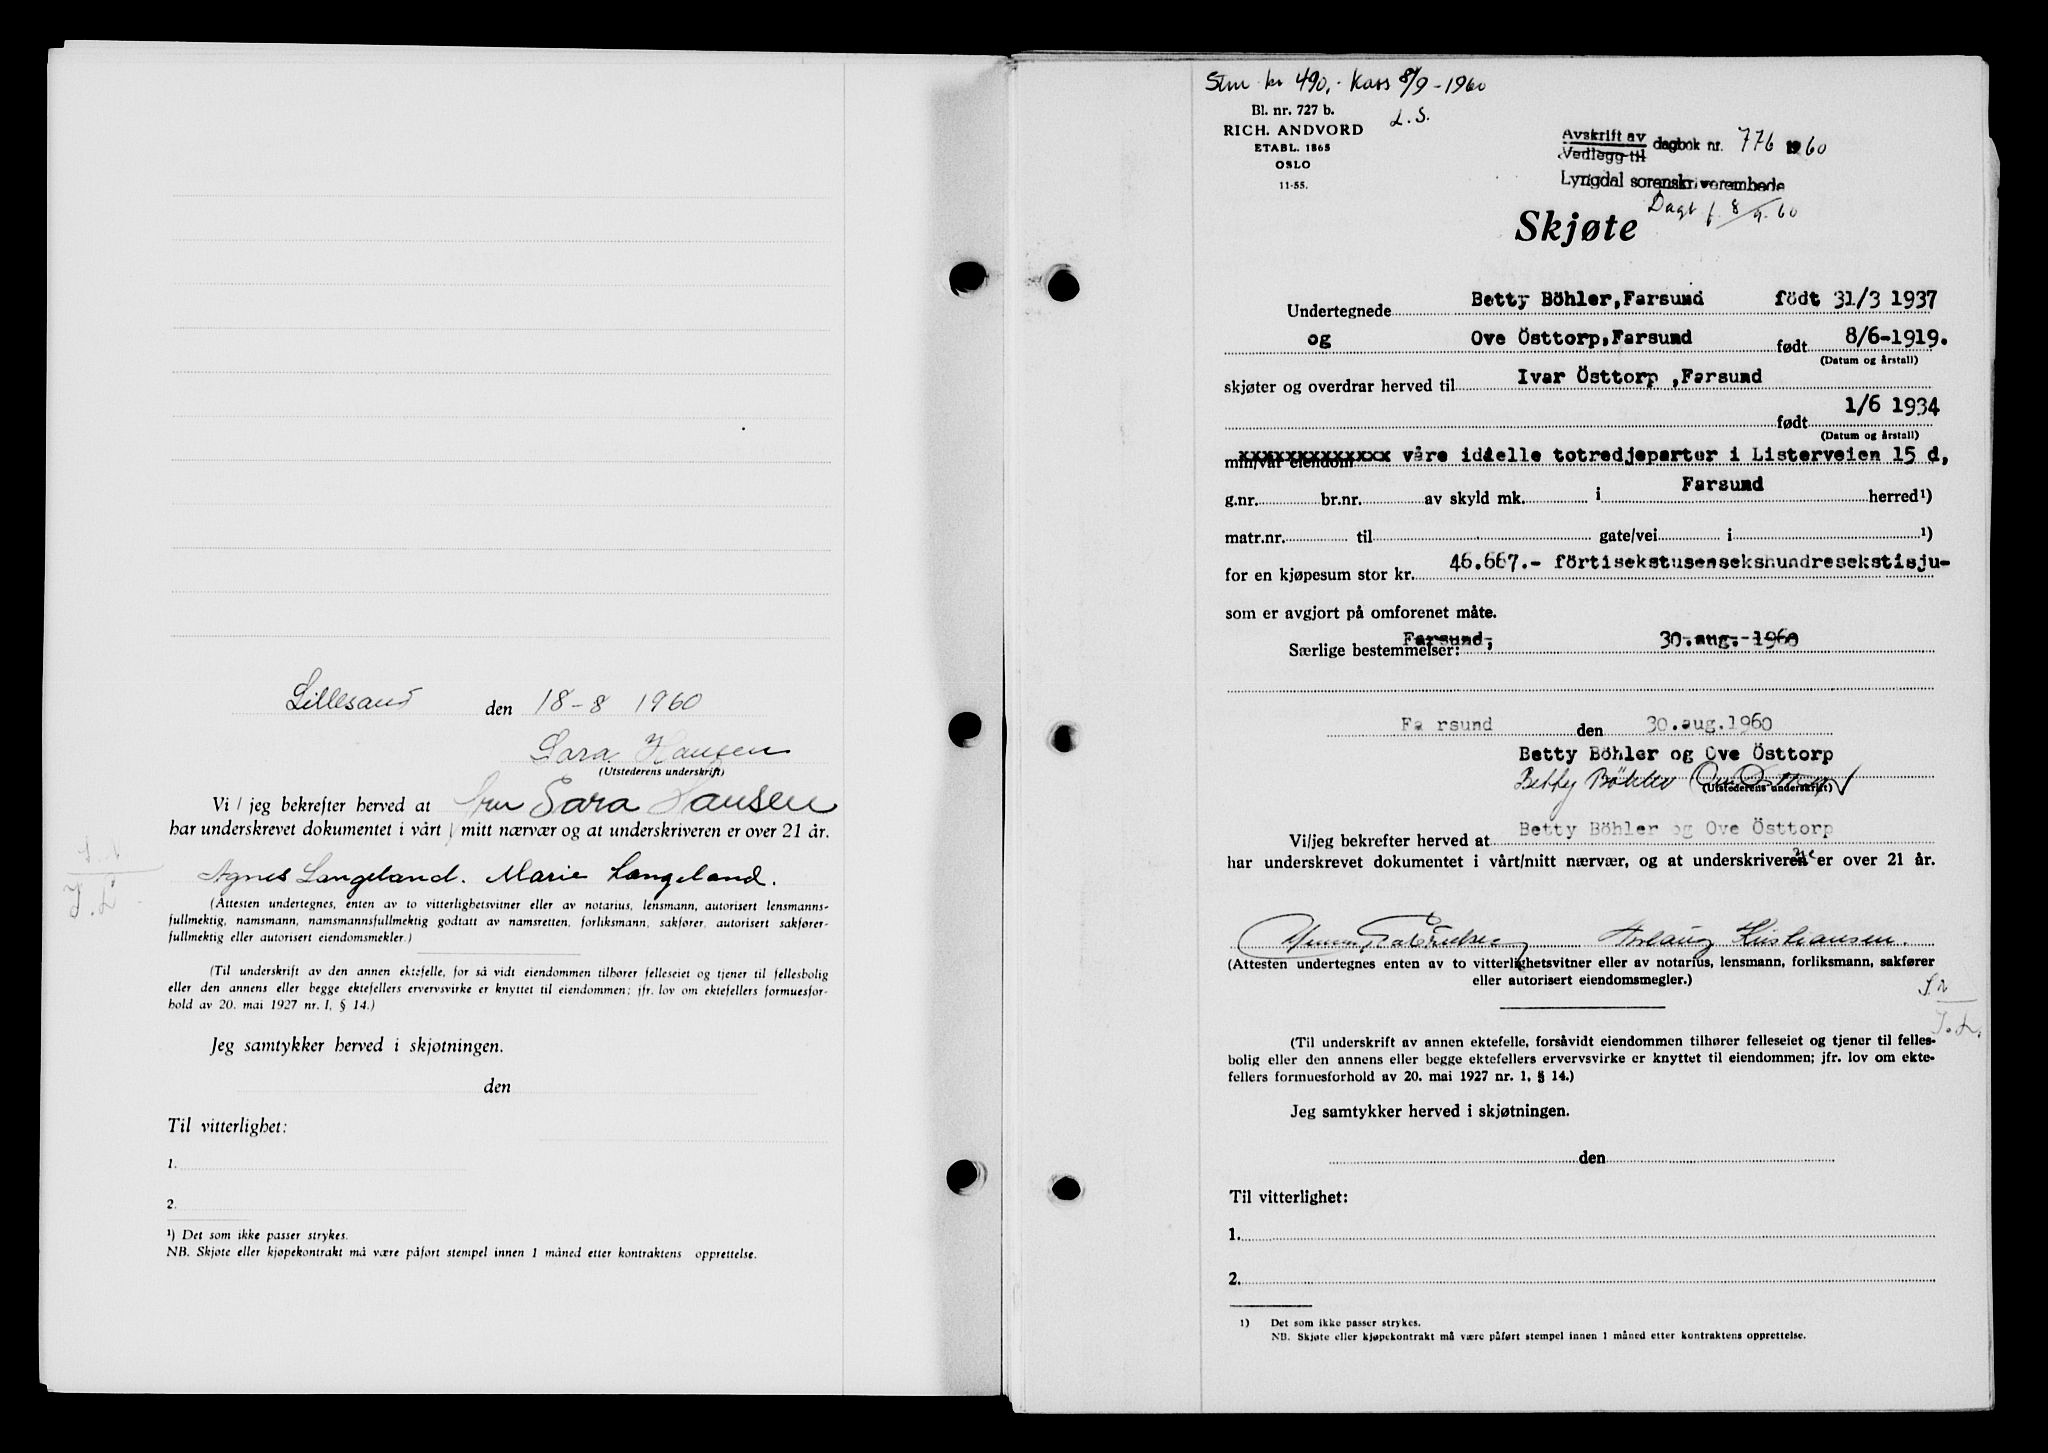 Lillesand den 18-8 1960
Sara Hansen
(Utstederens underskrift)
Vi / jeg bekrefter herved at fru Sara Hansen
har underskrevet dokumentet i vårt / mitt nærvær og at underskriveren er over 21 år.
Agnes Langeland. Marie Langeland.
(Attesten undertegnes, enten av to vitterlighetsvitner eller av notarius, lensmann, autorisert lensmanns-
fullmektig, namsmann, namsmannsfullmektig godtatt av namsretten, forliksmann, sakfører, autorisert sakfører-
fullmektig eller autorisert eiendomsmekler.)
(Til underskrift av den annen ektefelle, for så vidt eiendommen tilhører felleseiet og tjener til fellesbolig
eller den annens eller begge ektefellers ervervsvirke er knyttet til eiendommen; jfr. lov om ektefellers formuesfor-
hold av 20. mai 1927 nr. 1, § 14.)
Jeg samtykker herved i skjøtningen.
den
Til vitterlighet:
1.
2.
¹) Det som ikke passer strykes.
NB. Skjøte eller kjøpekontrakt må være påført stempel innen 1 måned etter kontraktens opprettelse.
Stm kr 490,- Kass 8/9-1960
L.S.
Bl. nr. 727 b.
RICH. ANDVORD
ETABL. 1865
OSLO
11-55.
Avskrift av
Vedlegg til
dagbok nr. 776 1960
Lyngdal sorenskriverembede
Dagb f. 8/9.60
Skjøte
Undertegnede Betty Böhler, Farsund födt 31/3 1937
og Ove Östtorp, Farsund født 8/6-1919.
(Datum og årstall)
skjøter og overdrar herved til Ivar Östtorp ,Farsund
født 1/6 1934
(Datum og årstall)
min/vår eiendom xxxxxxxxxxxxx våre idielle totredjeparter i Listerveien 15 d,
g.nr. br.nr. av skyld mk. i Farsund herred¹)
matr.nr. til gate/vei i ¹)
for en kjøpesum stor kr. 46.667.- förtisekstusensekshundresekstisju-
som er avgjort på omforenet måte.
Særlige bestemmelser: Farsund, 30.aug.-1960
Fa rsund den 30.aug.1960
Betty Böhler og Ove Östtorp
Betty Böhler Ove Östtorp
(Utstederens underskrift)
Vi/jeg bekrefter herved at Betty Böhler og Ove Östtorp
har underskrevet dokumentet i vårt/mitt nærvær, og at underskriverene er over 21 år.
Aslaug Kristiansen.
(Attesten undertegnes enten av to vitterlighetsvitner eller av notarius, lensmann, forliksmann, sakfører
eller autorisert eiendomsmegler.)
(Til underskrift av annen ektefelle, forsåvidt eiendommen tilhører felleseiet og tjener til felles-
bolig eller den annens eller begge ektefellers ervervsvirke er knyttet til eiendommen; jfr. lov om ekte-
fellers formuesforhold av 20. mai 1927 nr. 1, § 14.)
Jeg samtykker herved i skjøtningen.
den
Til vitterlighet:
1.
2.
1) Det som ikke passer strykes.
NB. Skjøte eller kjøpekontrakt må være påført stempel innen 1 måned etter kontraktens opprettelse.